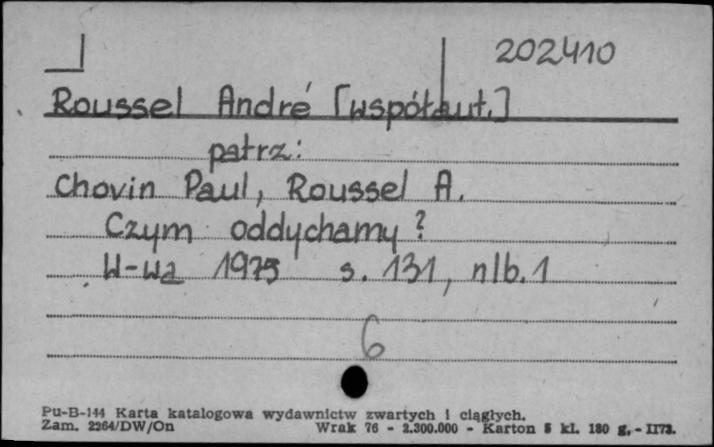 202410
Roussel André [współaut.]
patrz:
Chovin Paul, Roussel A.
Czym oddychamy?
W-wa 1975 s. 131, nlb. 1
6
Pu-B-144 Karta katalogowa wydawnictw zwartych i ciągłych.
Zam. 2264/DW/On Wrak 76 - 2.300.000 - Karton 5 kl. 180 g. - II73.